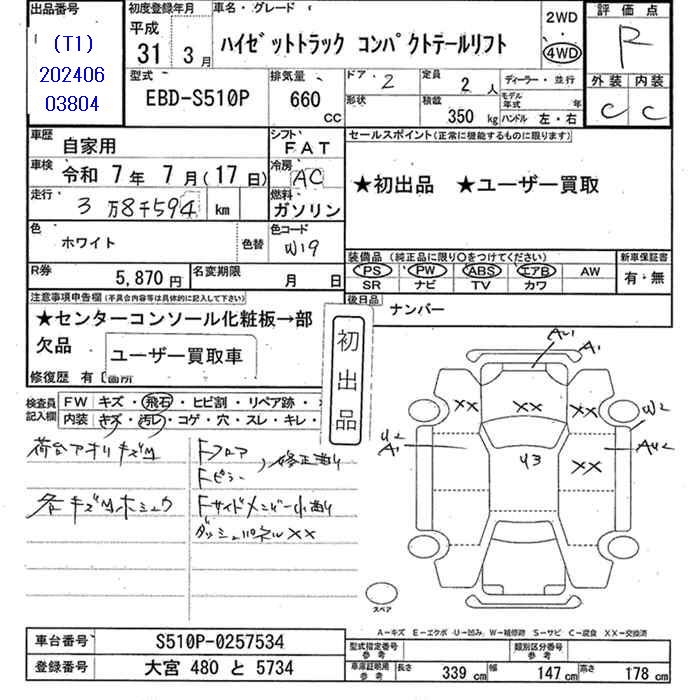 出品番号
(T1)
202406
03804
初度登録年月
平成
31年3月
車名・グレード
ハイゼットトラック コンパクトテールリフト
2WD
4WD
評価点
R
型式
EBD-S510P
排気量
660
CC
ドア 2
形状
定員 2人
積載 350 kg
ディーラー・並行
モデル年式 年
ハンドル 左・右
外装 内装
C C
車歴 自家用
シフト FAT
車検 令和 7年 7月(17日)
冷房 AC
走行 3万8千594 km
燃料 ガソリン
色 ホワイト 色替
色コード W19
R券 5,870円
名変期限 月 日
セールスポイント(正常に機能するものに限ります)
★初出品 ★ユーザー買取
装備品(純正品に限り○をつけてください)
新車保証書
PS PW ABS エアB AW
有・無
SR ナビ TV カワ
後日品 ナンバー
注意事項申告欄(不具合内容等は具体的に記入して下さい)
★センターコンソール化粧板→部
欠品
ユーザー買取車
修復歴 有 箇所
初出品
検査員記入欄
FW キズ・飛石・ヒビ割・リペア跡・
内装 キズ・汚レ・コゲ・穴・スレ・キレ・
荷台アオリキズM
各キズMホシュウ
Fフロア
Fピラー
修正有り
FサイドメンバーI小有り
ダッシュパネルXX
AU1
A1
XX XX XX
W2
U2
A1
U3
XX
AU2
スペア
A-キズ E-エクボ U-凹み W-補修跡 S-サビ C-腐食 XX-交換済
車台番号 S510P-0257534
登録番号 大宮 480 と 5734
型式指定番号 参考
類別区分番号 参考
車庫証明用 参考
長さ 339 cm 幅 147 cm 高さ 178 cm